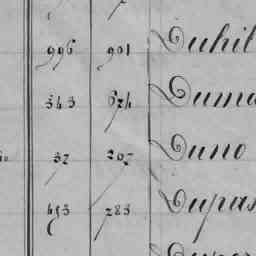 996 901 Duhil
343 624 Duma
37 207 Duno
453 283 Dupas